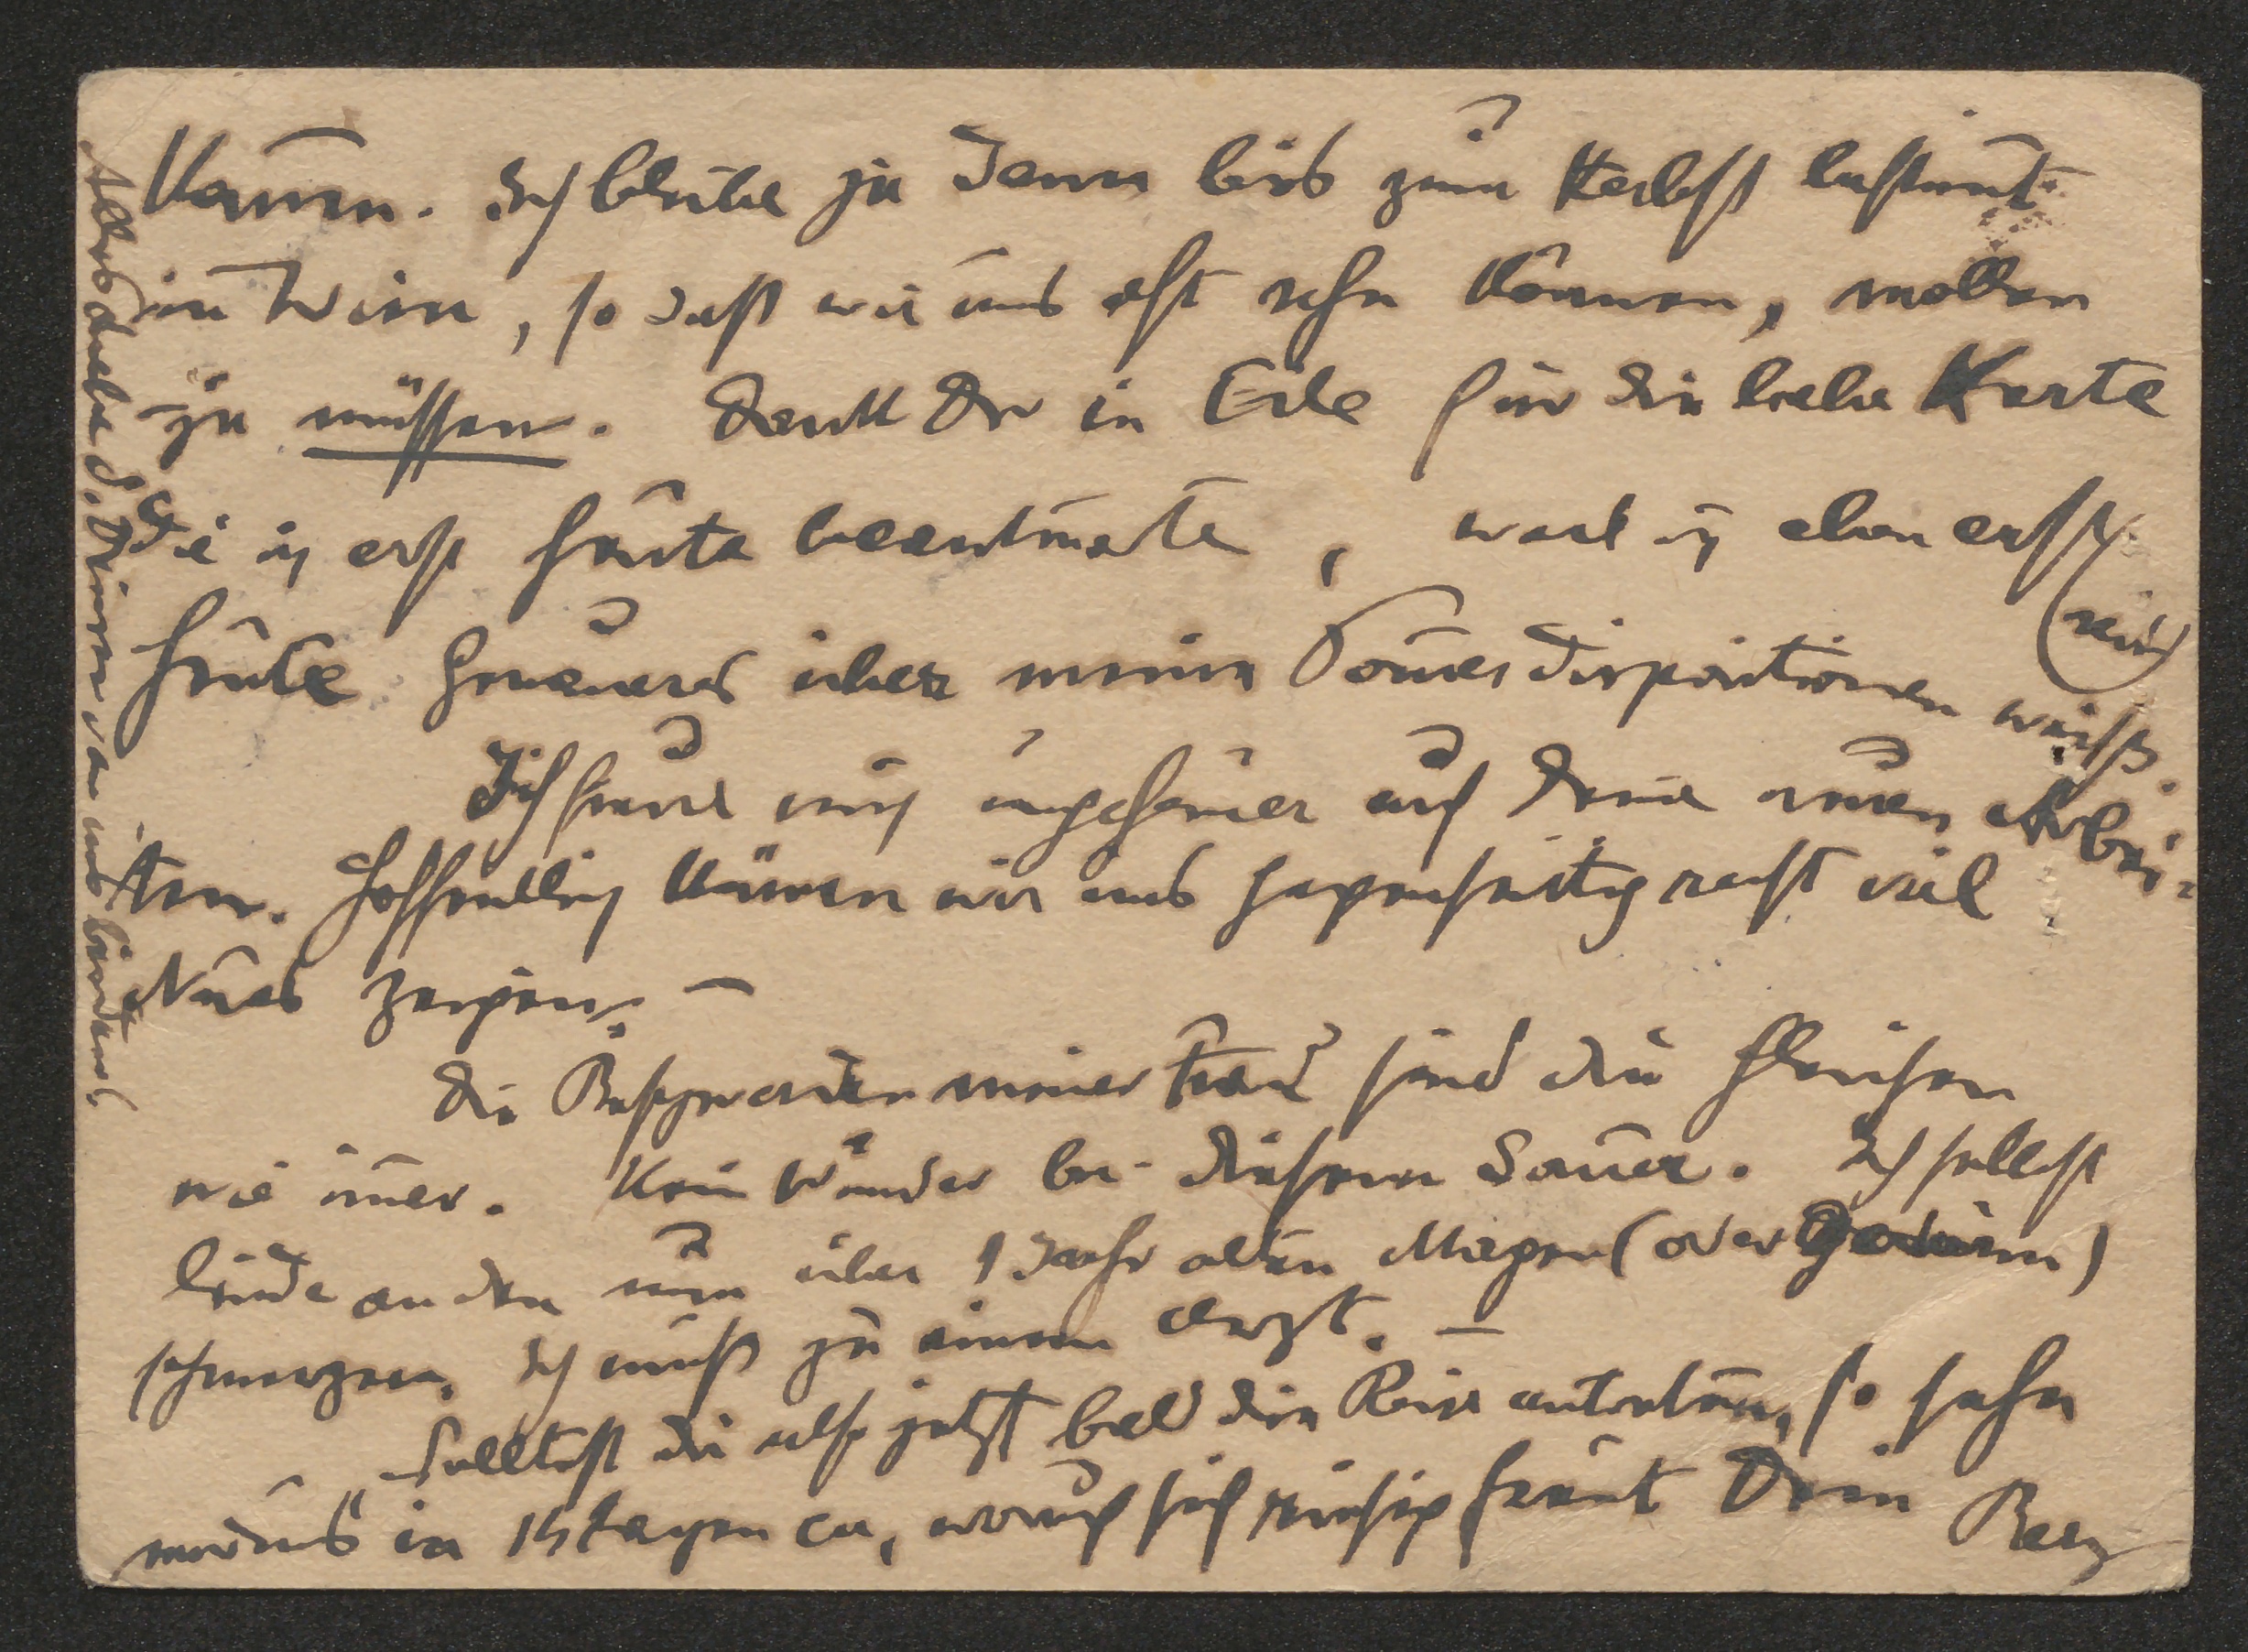 kommen. Ich bleibe ja dann bis zum Herbst bestimmt
in Wien, so daß wir uns oft sehn können, wollen
ja müssen. Dank Dir in Eile für die liebe Karte
die ich erst heute beantworte, weil ich eben erst
(seit)
heute Genaueres über meine Sommerdispositionen weiß.
Ich freue mich ungeheuer auf Deine neuen Arbei-
ten. Hoffentlich können wir uns gegenseitig recht viel
Neues zeigen. —
Die Beschwerden meiner Frau sind die gleichen
wie immer. Kein Wunder bei diesem Dauer. Ich selbst
leide an den nun über 1 Jahr alten Magen (oder Gedärm)
schmerzen. Ich muß zu einem Arzt. —
Solltest Du also jetzt bald die Reise antreten, so sehn
wir uns in 15 Tagen ca, worauf sich riesig freut Dein Berg
Alles Liebe d. Deinen von uns beiden!